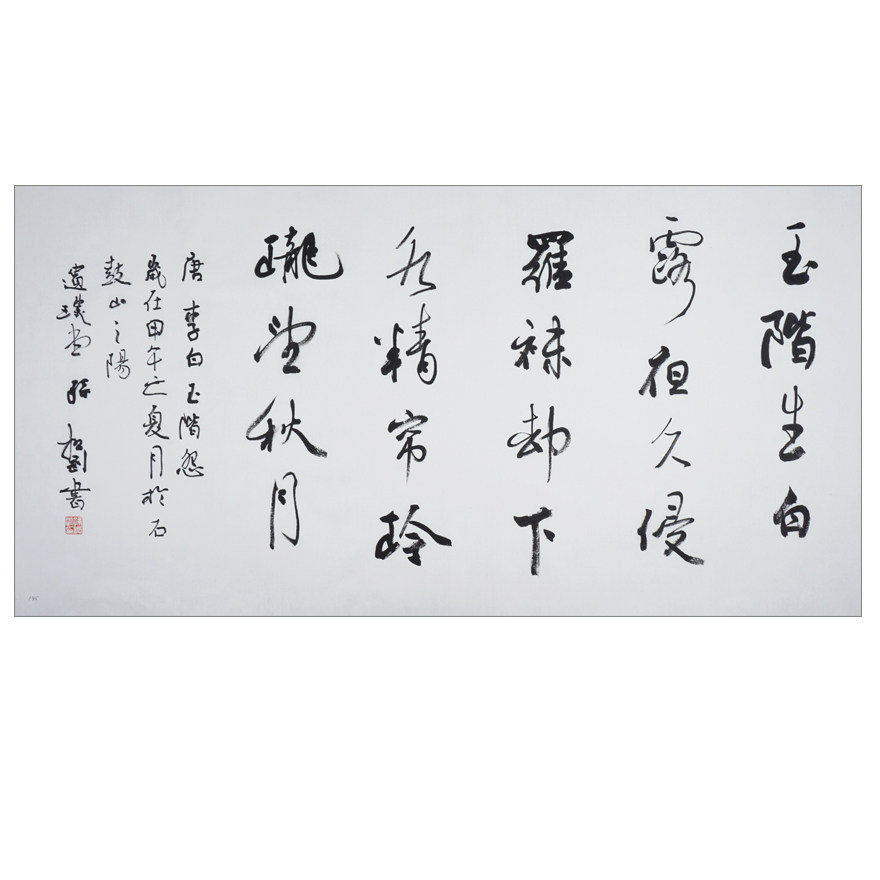 玉階生白
露夜久侵
羅袜却下
水精帘玲
瓏望秋月
唐李白玉階怨
歲在甲午之夏月於石
鼓山之陽
遺璞堂 書